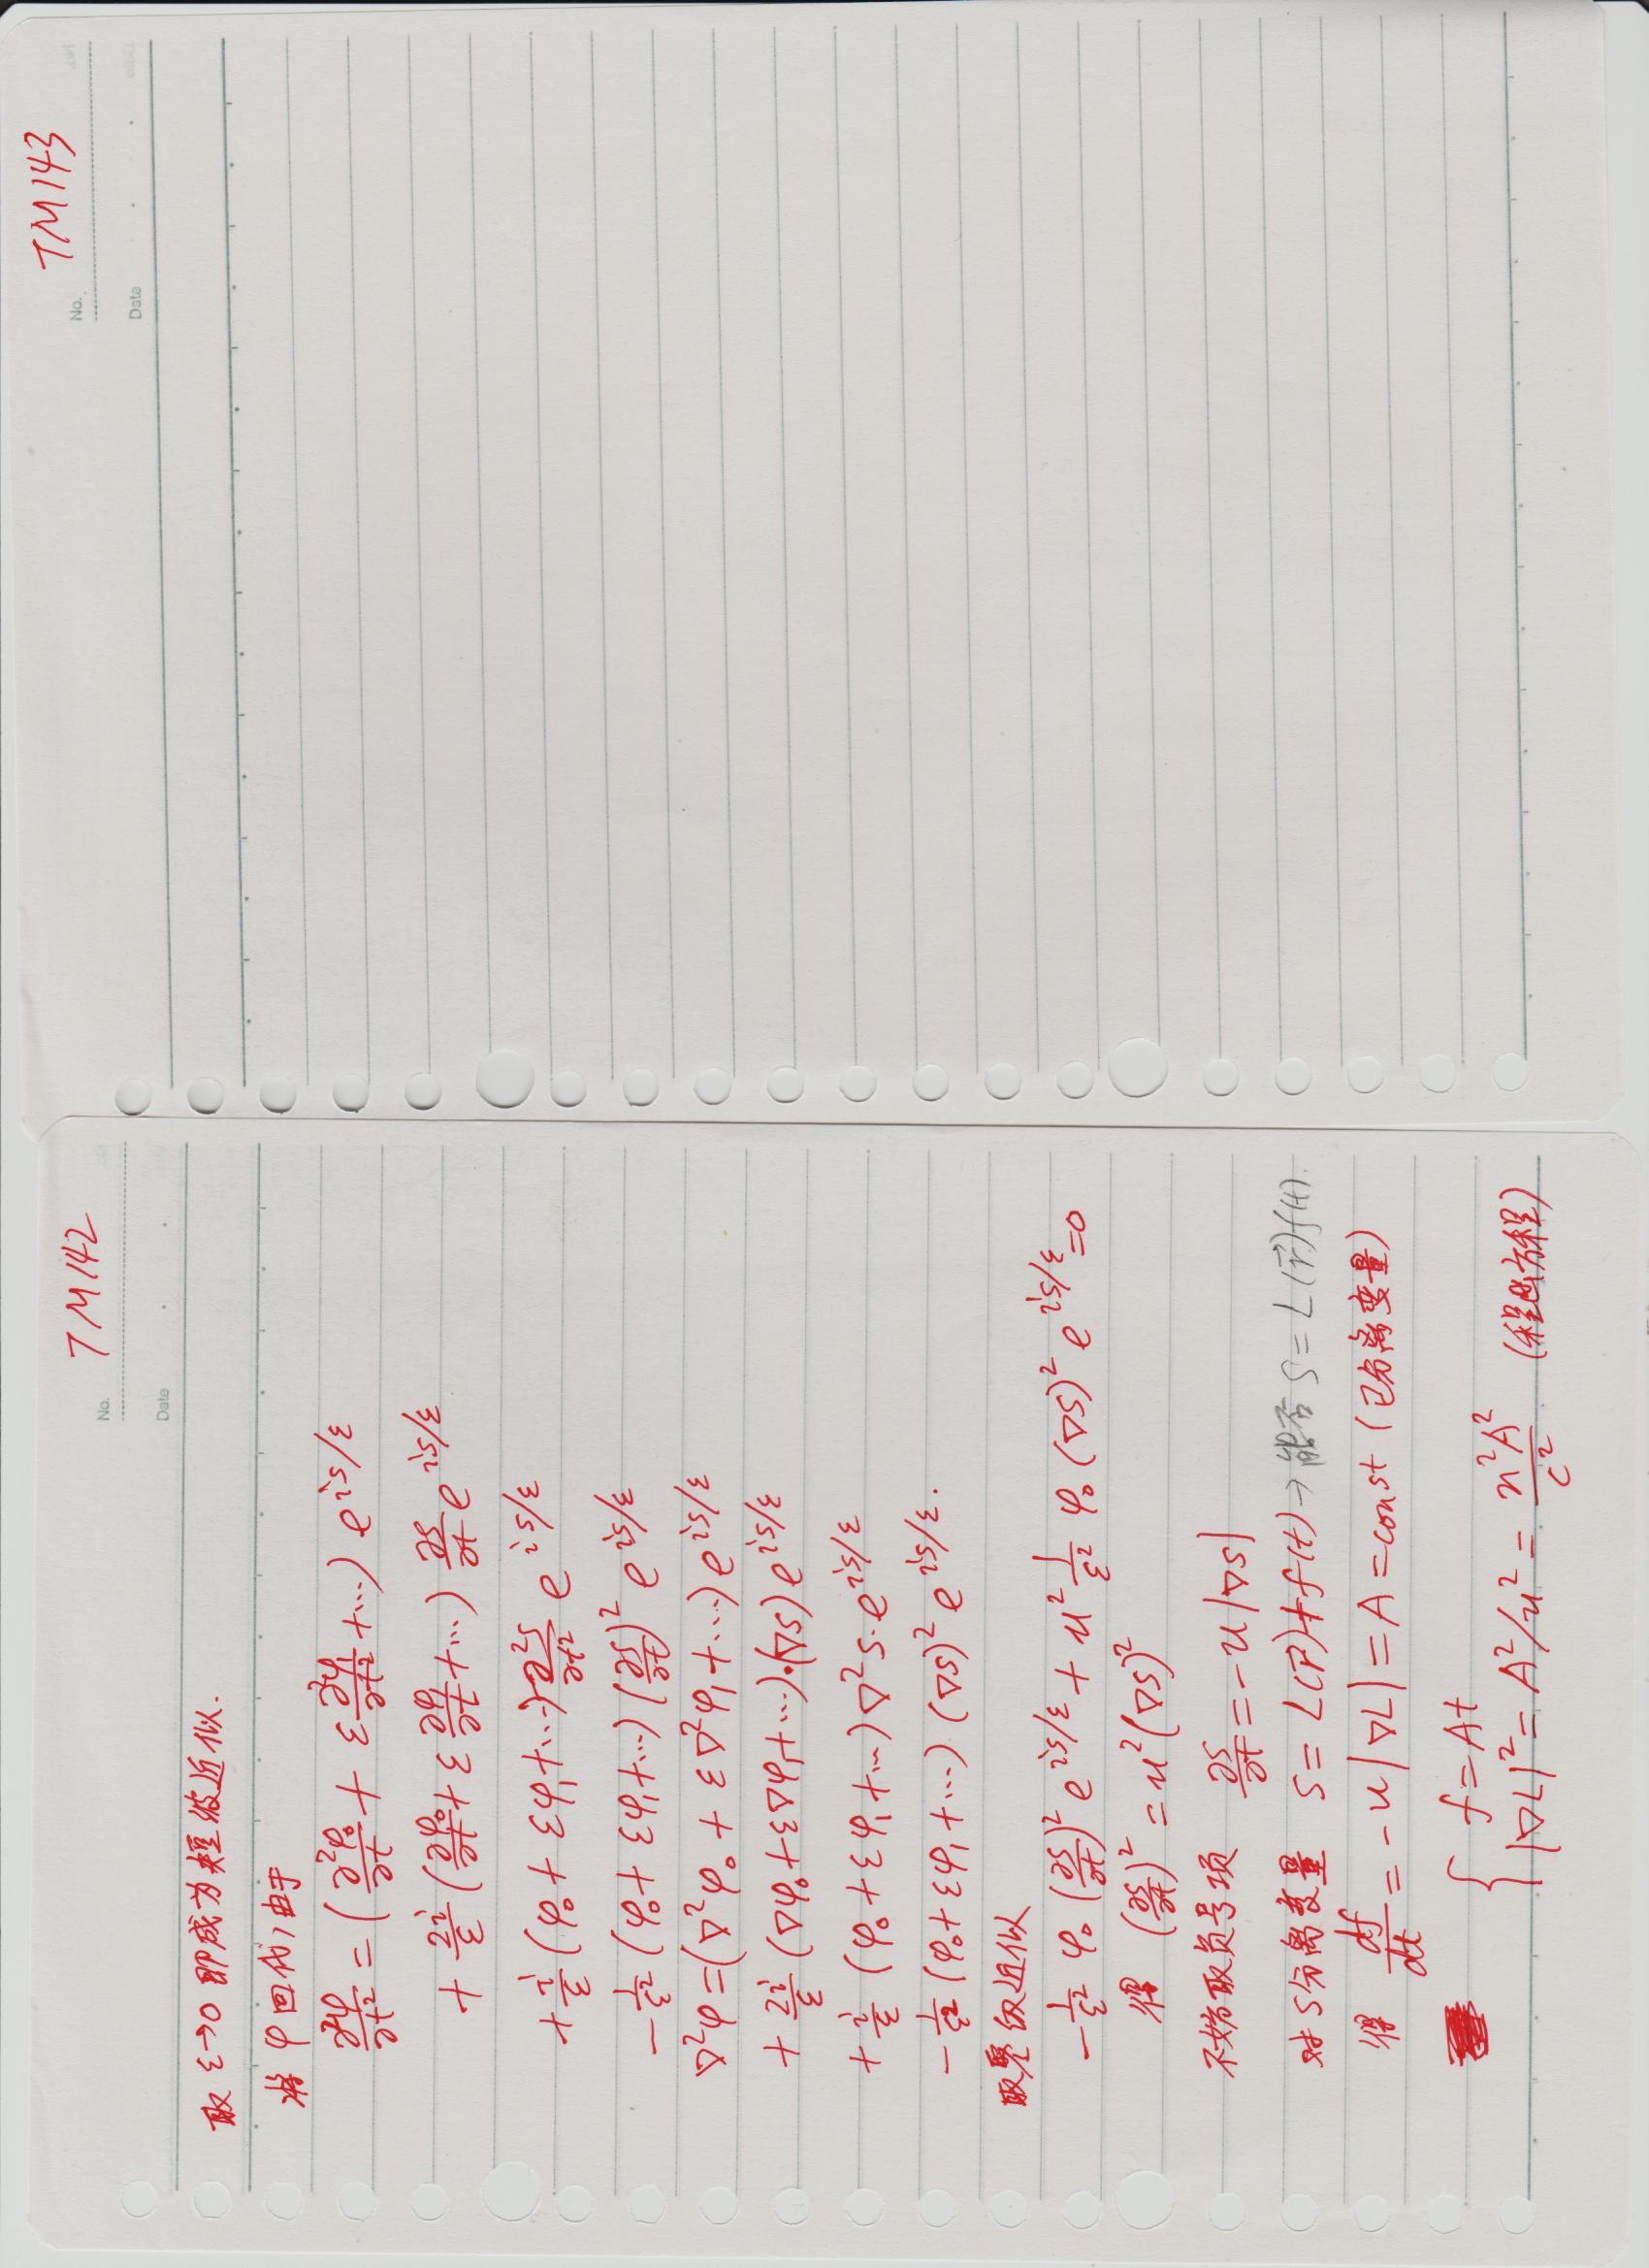 TM142
No.
Date
取 ε→0 即成为短波近似.
将 φ 回代,由于
∂²φ/∂t² = (∂²φ₀/∂t + ε ∂²φ₁/∂t² + ⋯) e^{is/ε}
+ 2i/ε (∂φ₀/∂t + ε ∂φ₁/∂t + ⋯) ∂s/∂t e^{is/ε}
+ i/ε (φ₀ + εφ₁ + ⋯) ∂²s/∂t² e^{is/ε}
− 1/ε² (φ₀ + εφ₁ + ⋯) (∂s/∂t)² e^{is/ε}
∇²φ = (∇²φ₀ + ε∇²φ₁ + ⋯) e^{is/ε}
+ 2i/ε (∇φ₀ + ε∇φ₁ + ⋯)·(∇s) e^{is/ε}
+ i/ε (φ₀ + εφ₁ + ⋯) ∇²s·e^{is/ε}
− 1/ε² (φ₀ + εφ₁ + ⋯) (∇s)² e^{is/ε}.
取零级近似
− 1/ε² φ₀ (∂s/∂t)² e^{is/ε} + u² 1/ε² φ₀ (∇s)² e^{is/ε} = 0
得 (∂s/∂t)² = u²(∇s)²
不妨取负号项 ∂s/∂t = −u|∇s|
对 s 分离变量 s = L(r⃗) + f(t) → 能否 s = L(r⃗)f(t).
得 df/dt = −u|∇L| = A = const (已分离变量)
{ f = At
|∇L|² = A²/u² = n²A²/c² (程函方程)
TM143
No.
Date